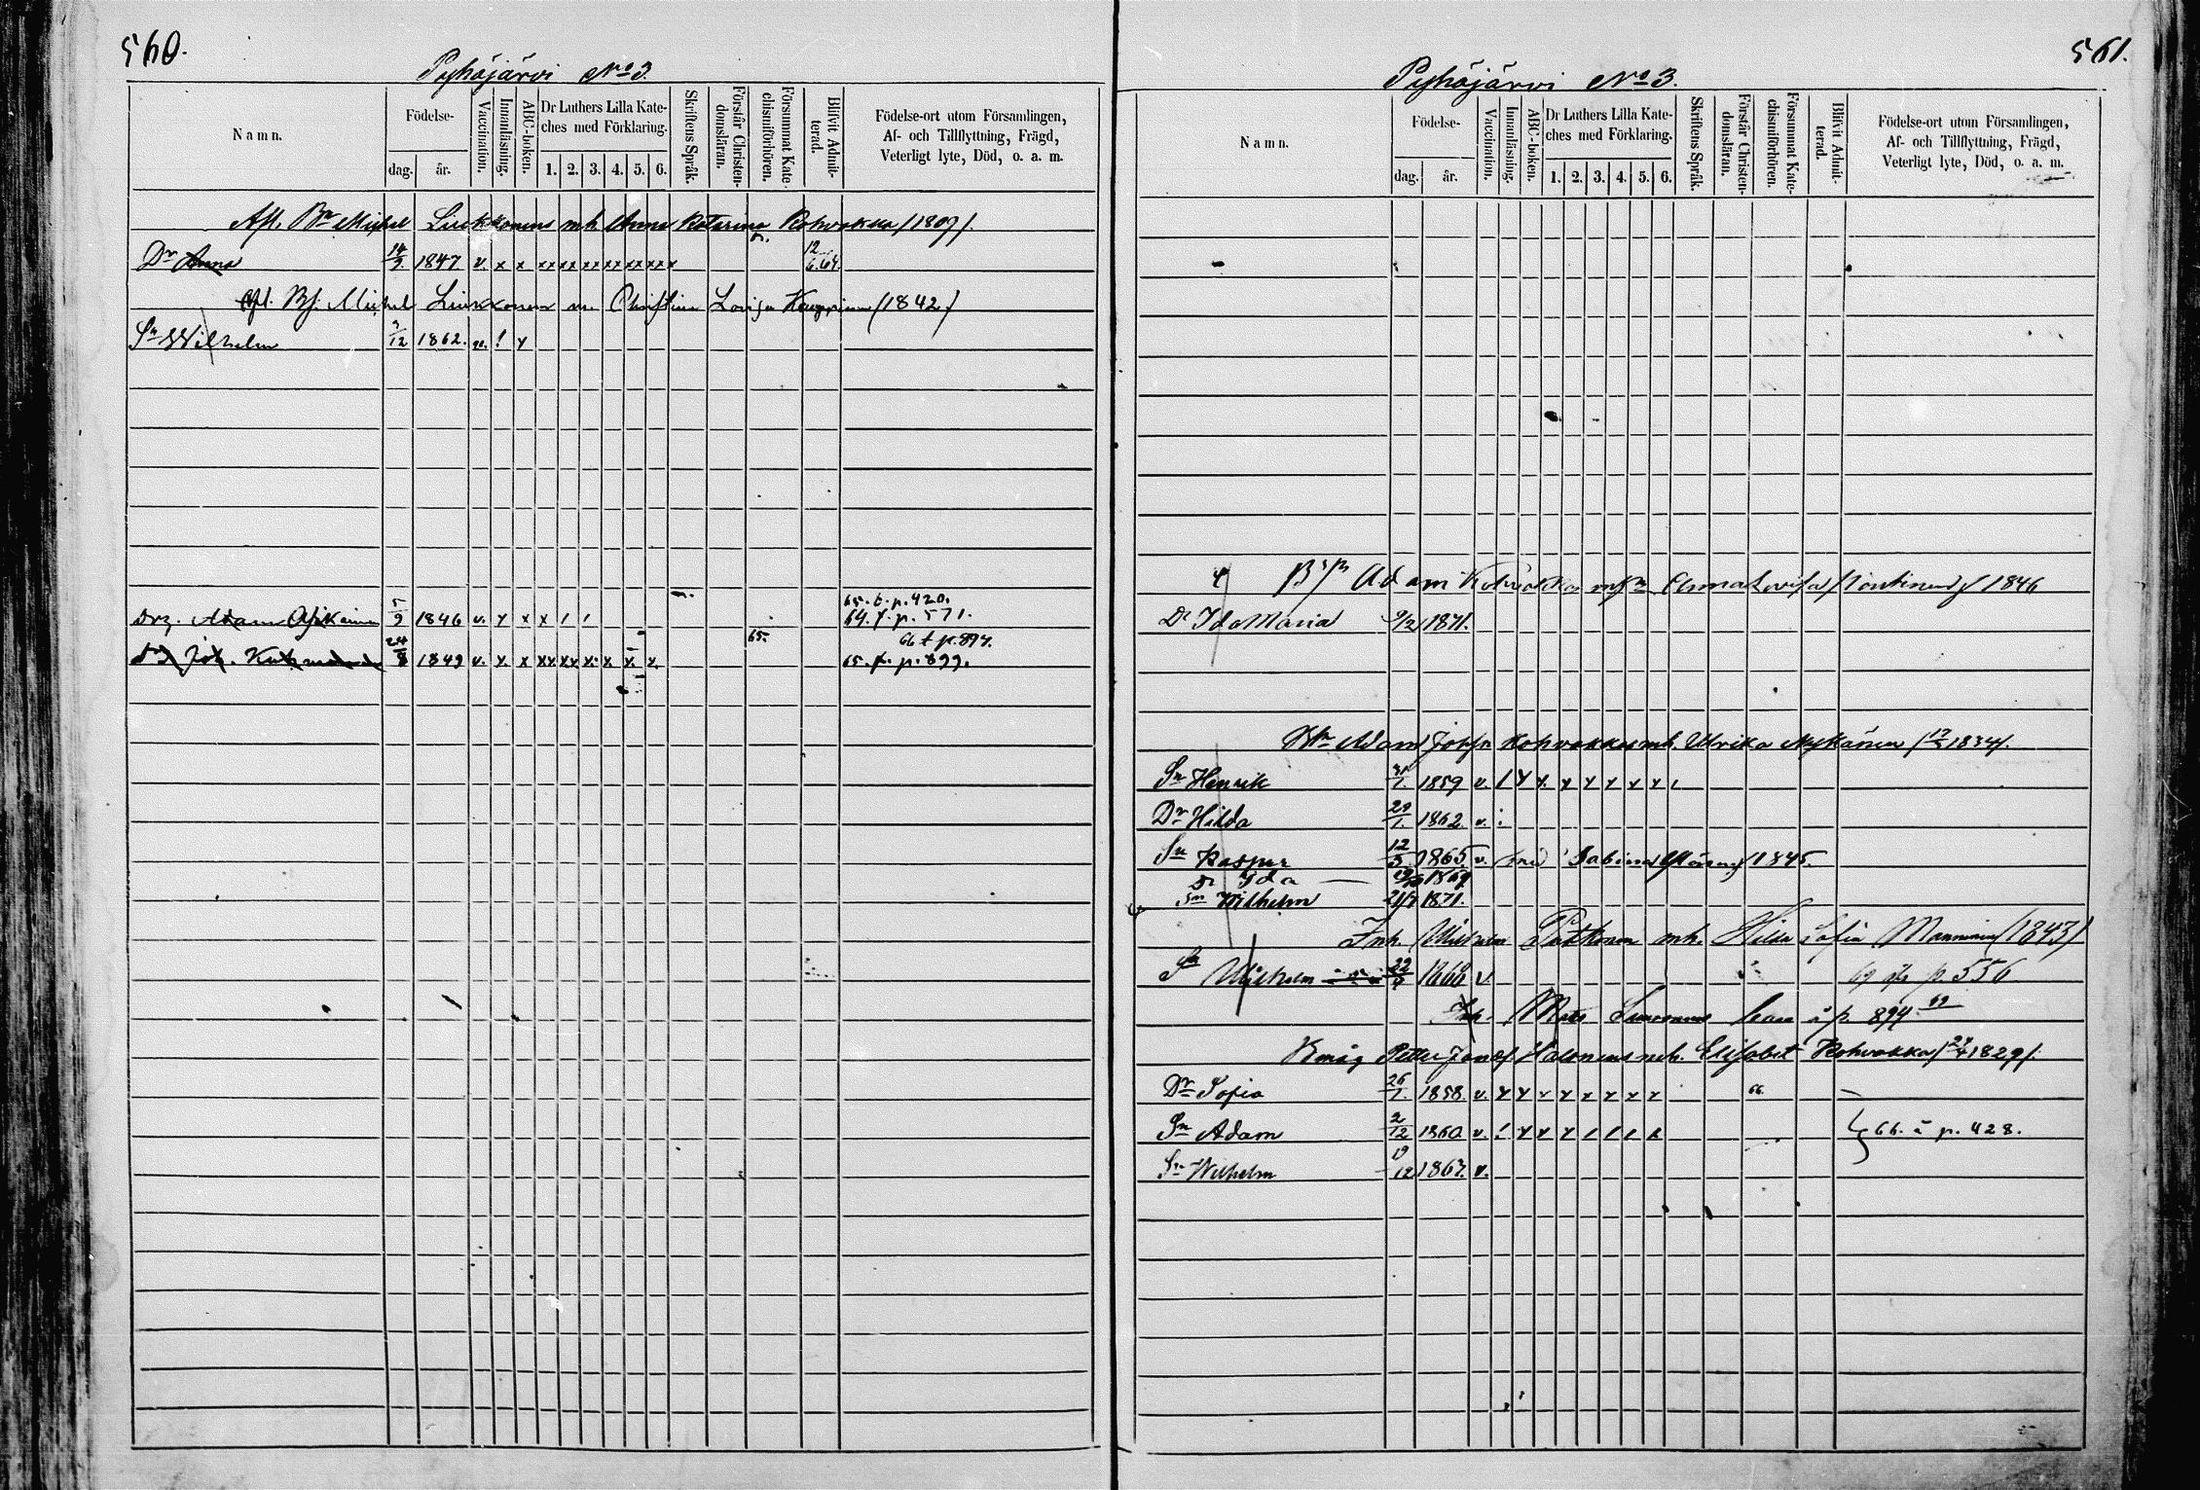 560.
Pyhäjärvi No 3.
Namn.
Födelse-
dag.
år.
Vaccination.
Innanläsning.
ABC-boken.
Dr Luthers Lilla Kate-
ches med Förklaring.
1. 2. 3. 4. 5. 6.
Skriftens Språk.
Förstår Christen-
domsläran.
Försummat Kate-
chismiförhören.
Blifvit Admit-
terad.
Födelse-ort utom Församlingen,
Af- och Tillflyttning, Frägd,
Veterligt lyte, Död, o. a. m.
Afl. Bn Michel Liukkonens mh Anna Katarina Kohvakka (1809).
Dr Anna 14/9 1847 v. x x xx xx xx xx xx xx 12/6.64.
Afl. Bf. Michel Liukkonen m. Christina Lovisa (1842)
Sn Wilhelm /12 1862. v. ! x
65. t. p. 420.
Drg. Adam 5/9 1846 v. x x x / / 64. f. p. 571.
66 t p. 894.
65.
Joh. 24/8 1849 v. x. x xx. xx x. x x. x. 65. f. p. 899.
561.
Pyhäjärvi No 3.
Namn.
Födelse-
dag.
år.
Vaccination.
Innanläsning.
ABC-boken.
Dr Luthers Lilla Kate-
ches med Förklaring.
1. 2. 3. 4. 5. 6.
Skriftens Språk.
Förstår Christen-
domsläran.
Försummat Kate-
chismiförhören.
Blifvit Admit-
terad.
Födelse-ort utom Församlingen,
Af- och Tillflyttning, Frägd,
Veterligt lyte, Död, o. a. m.
Adam Kohvakka Anna Lovisa 1846
Dr Ida Maria 9/2 1871.
Adam Johsn Kohvakkas mh. Ulrika Nykänen 1834).
Sn Henrik 1859 v. / x x. x x x x x /
Dr Hilda 29/1. 1862. v. :
Sn Kasper 12/3 1865. v. Sabina 1845.
Dr Ida 1869
Sn Wilhelm 21/7 1871.
Inh. Wilhelm Putkonen mh. Hilda Sofia Manninen (1843)
Sn Wilhelm 22 1868 v 69 p. 556
Inh. Mats å p 894 69
Kmåg Petter Josef Halonens mh. Elisabet Kohvakka (24/4 1829).
Dr Sofia 26/1. 1858. v. x x x x x x x x 66.
Sn Adam 2/12 1860 v. ! x x x / / / x 66. å p. 428.
Sn Wilhelm 19/12 1863. v.